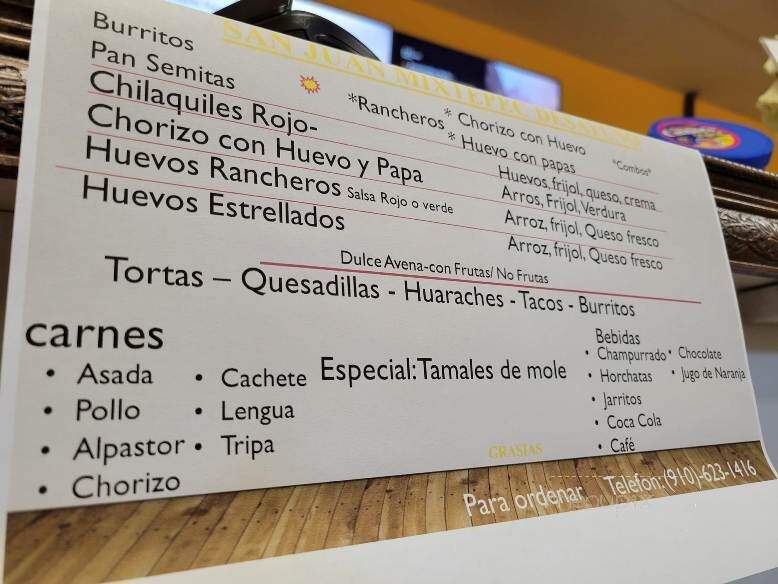 SAN JUAN MIXTEPEC DESAYUNO
Burritos *Rancheros * Chorizo con Huevo
Pan Semitas * Huevo con papas *Combos*
Chilaquiles Rojo- Huevos, frijol, queso, crema
Chorizo con Huevo y Papa Arros, Frijol, Verdura
Huevos Rancheros Salsa Rojo o verde Arroz, frijol, Queso fresco
Huevos Estrellados Arroz, frijol, Queso fresco
Dulce Avena-con Frutas/ No Frutas
Tortas – Quesadillas - Huaraches - Tacos - Burritos
carnes
• Asada
• Pollo
• Alpastor
• Chorizo
• Cachete
• Lengua
• Tripa
Especial: Tamales de mole
Bebidas
• Champurrado
• Horchatas
• Jarritos
• Coca Cola
• Café
• Chocolate
• Jugo de Naranja
GRASIAS
Para ordenar Telefon: (910)-623-1416